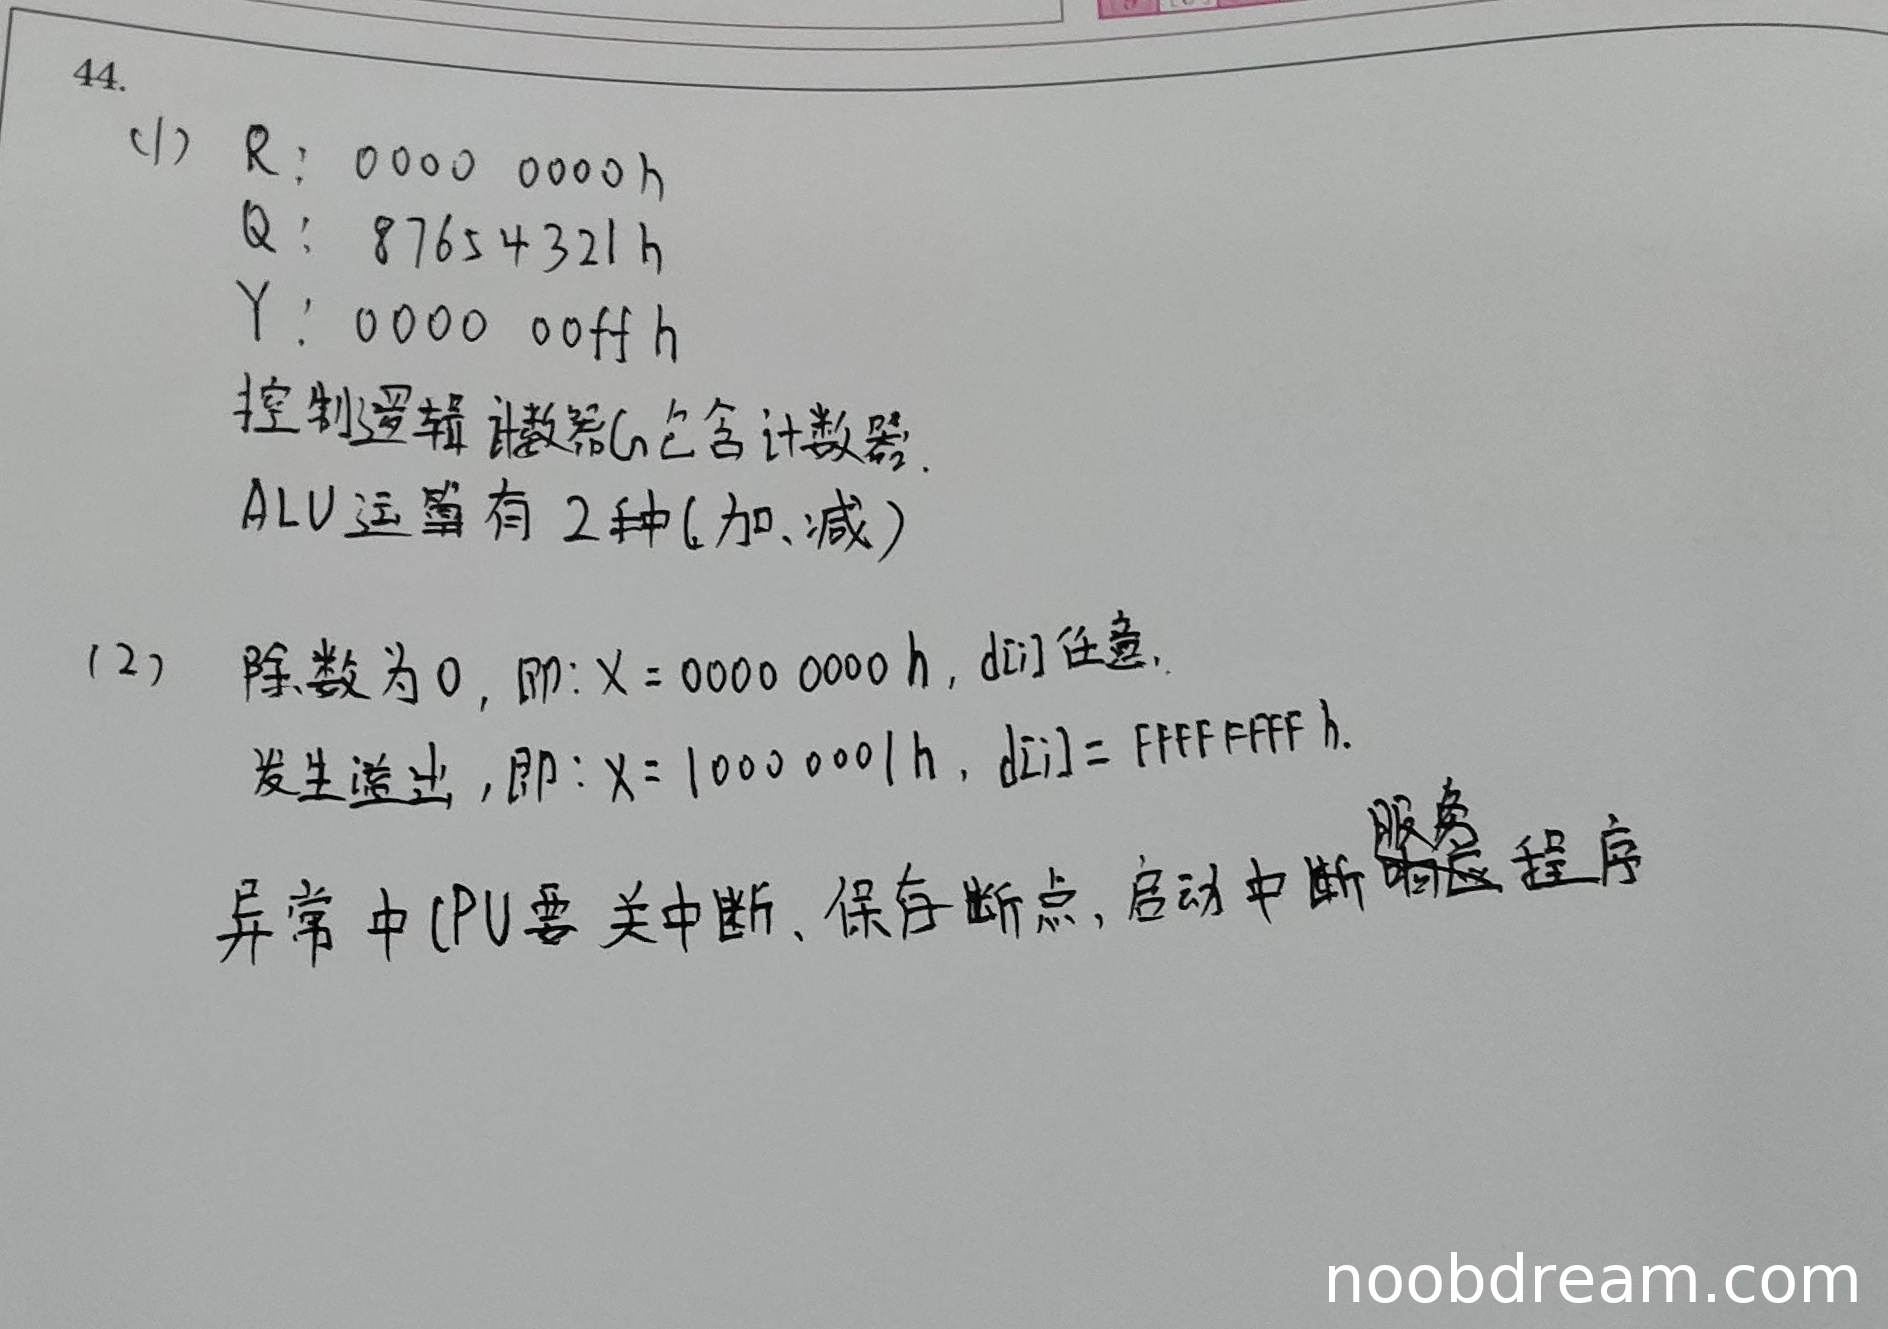 44.
(1) R: 0000 0000h
Q: 87654321h
Y: 0000 00ffh
控制逻辑计数器Cn包含计数器.
ALU运算有2种(加、减)
(2) 除数为0, 即: X=0000 0000h, d[i]任意.
发生溢出, 即: X=1000 0001h, d[i]=FFFF FFFFh.
异常中CPU要关中断、保存断点、启动中断服务程序
noobdream.com